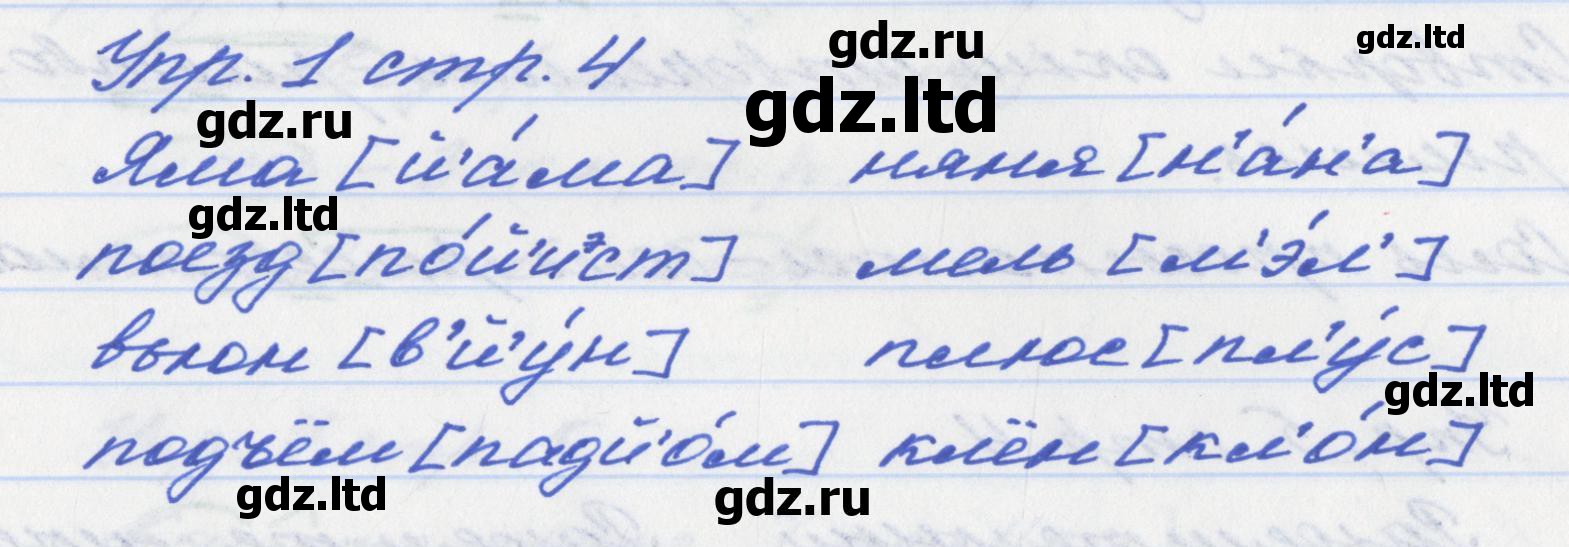 Упр. 1 стр. 4
gdz.ru
gdz.ltd
gdz.ltd
gdz.ru
Яма [й'áма] няня [н'áн'а]
gdz.ltd
поезд [пóй'иэст] мель [м'э́л']
вьюн [в'й'ýн] плюс [пл'ýс]
gdz.ltd
подъём [падй'óм] клён [кл'óн]
gdz.ltd
gdz.ru